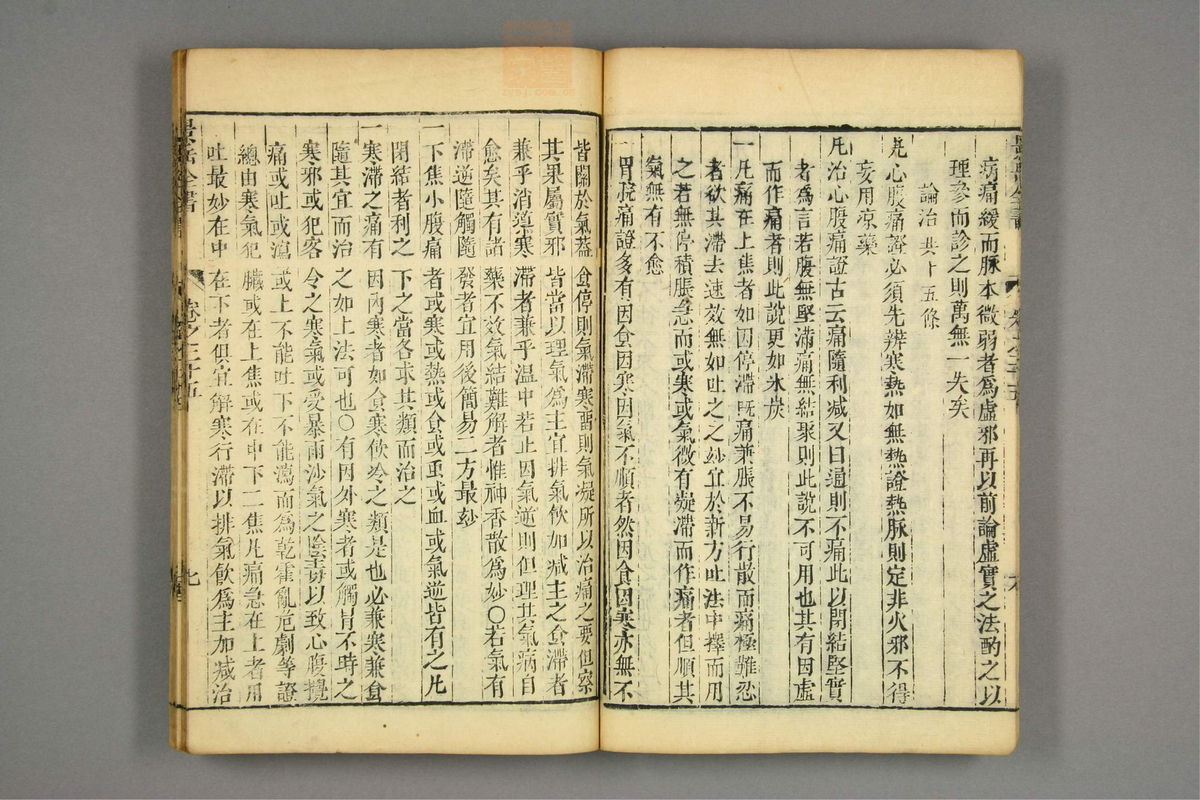 病痛緩而脉本微弱者爲虛邪再以前論虛實之法酌之以
理參而診之則萬無一失矣
論治共十五條
凡心腹痛證必須先辨寒熱如無熱證熱脉則定非火邪不得
妄用凉藥
凡治心腹痛證古云痛隨利減又曰通則不痛此以閉結堅實
者爲言若腹無堅滿痛無結聚則此説不可用也其有因虛
而作痛者則此說更如氷炭
一凡痛在上焦者如因停滯既痛兼脹不易行散而痛極難忍
者欲其滯去速效無如吐之之妙宜於新方吐法中擇而用
之若無停積脹急而或寒或氣微有凝滯而作痛者但順其
氣無有不愈
一胃脘痛證多有因食因寒因氣不順者然因食因寒亦無不
皆關於氣葢食停則氣滯寒畱則氣凝所以治痛之要但察
其果屬實邪皆當以理氣爲主宜排氣飲加減主之食滯者
兼乎消導寒滯者兼乎温中若止因氣逆則但理其氣病自
愈矣其有諸藥不效氣結難解者惟神香散爲妙○若氣有
滯逆隨觸隨發者宜用後簡易二方最妙
一下焦小腹痛者或寒或熱或食或虫或血或氣逆皆有之凡
閉結者利之下之當各求其類而治之
一寒滯之痛有因内寒者如食寒飲冷之類是也必兼寒兼食
隨其宜而治之如上法可也○有因外寒者或觸冒不時之
寒邪或犯客令之寒氣或受暴雨沙氣之陰毒以致心腹攪
痛或吐或瀉或上不能吐下不能瀉而爲乾霍亂危劇等證
總由寒氣犯臟或在上焦或在中下二焦凡痛急在上者用
吐最妙在中在下者俱宜解寒行滯以排氣飲爲主加减治
景岳全書
卷之二十五